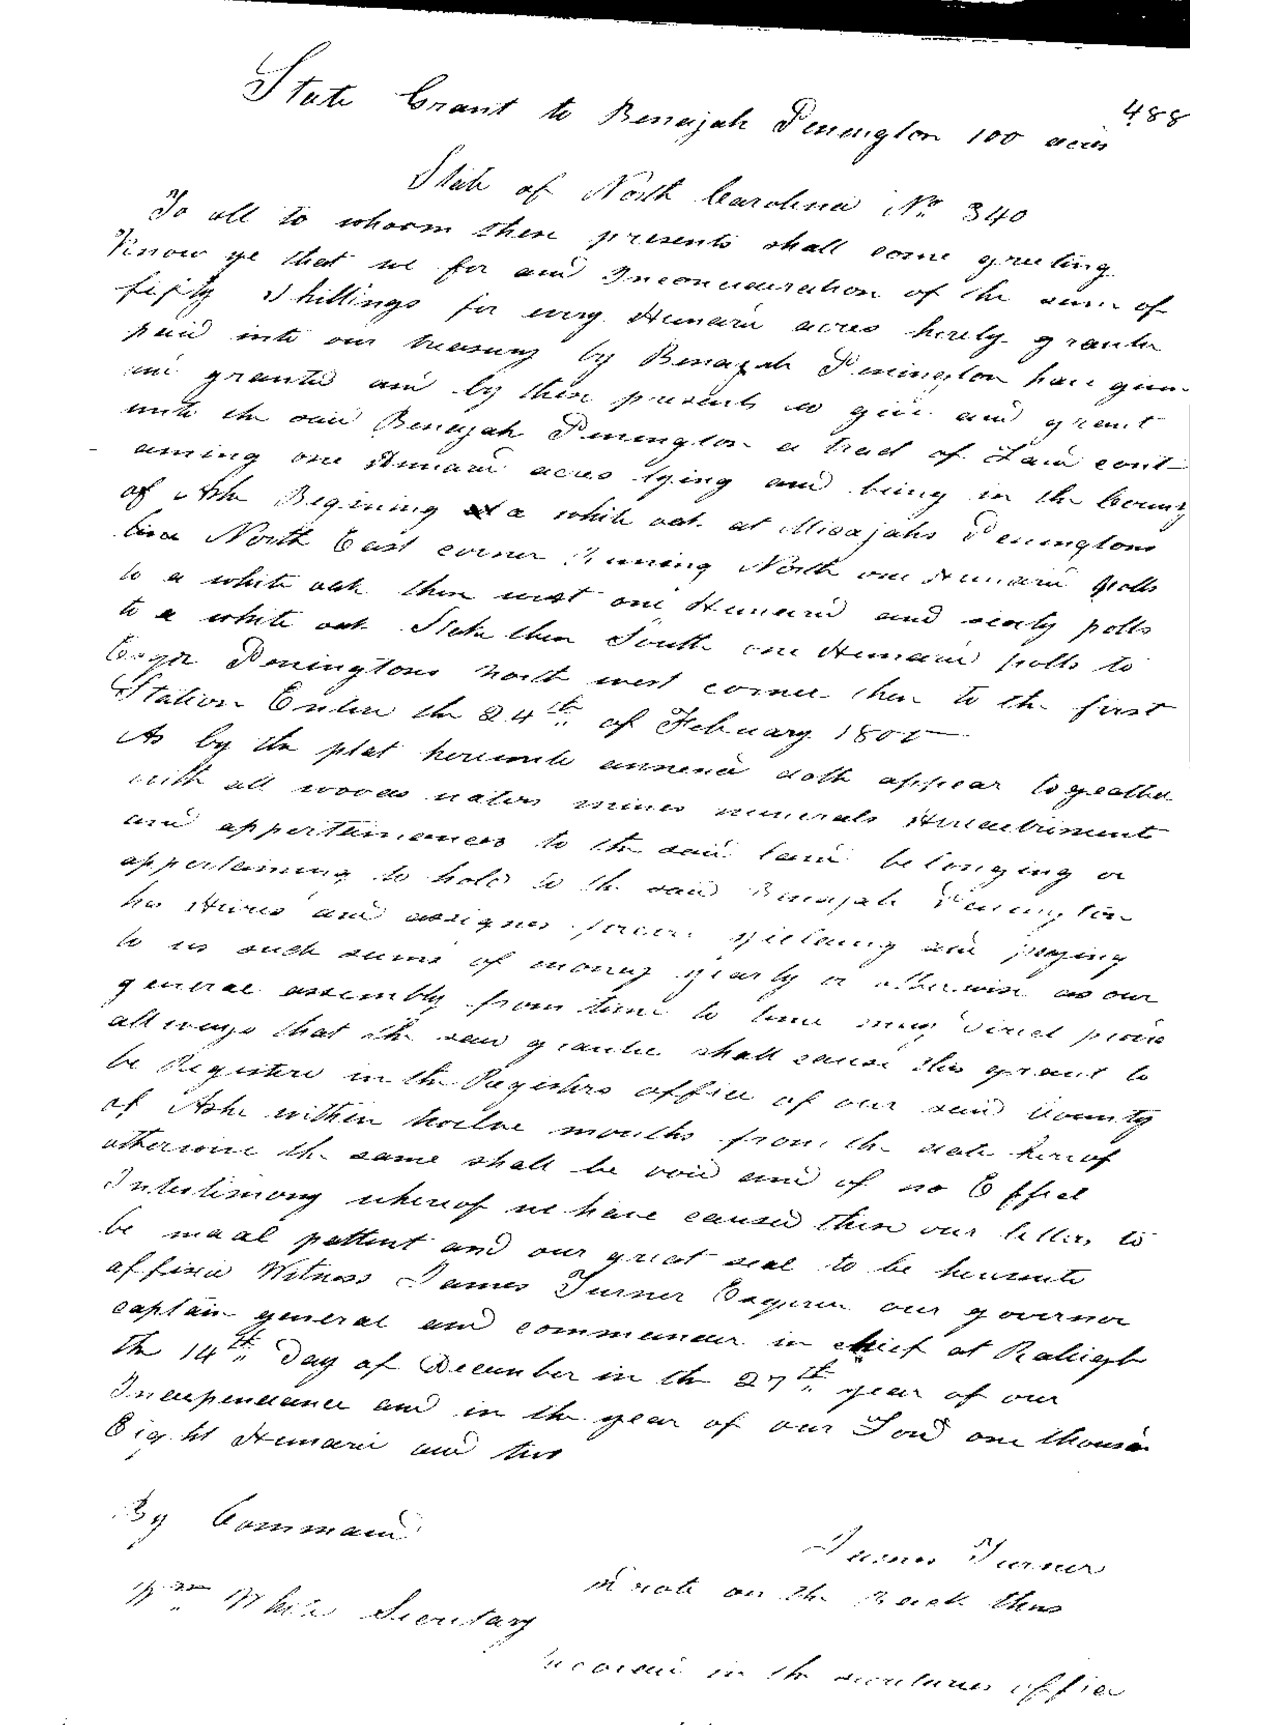 488
State Grant to Benajah Penington 100 acres
State of North Carolina No 340
To all to whoom these presents shall come greeting
Know ye that we for and Inconcideration of the sum of
fifty Shillings for every Hundred acres hereby granted
paid into our treasury by Benajah Penington have given
and granted and by these presents do give and grant
unto the said Benajah Penington a tract of Land cont-
aining one Hundred acres lying and being in the County
of Ashe Begining at a white oak at Micajahs Peningtons
line North East corner Runing North one Hundred polls
to a white oak then west one Hundred and sixty polls
to a white oak Stake then South one Hundred polls to
Peningtons north west corner then to the first
Station Entered the 24th of February 1800
As by the plat hereunto annexed doth appear togeather
with all woods waters mines minerals Heraditiments
and appertainances to the said land belonging or
appertaining to hold to the said Benajah Penington
his Heires and assignes forever yielding and paying
to us such sums of money yearly or otherwise as our
general assembly from time to time may direct provid
allways that the said grantee shall cause this grant to
be Registerd in the Registers office of our said County
of Ashe within twelve months from the date hereof
otherwise the same shall be void and of no Effect
Intestimony whereof we have caused these our letters to
be maid pattent and our great seal to be hereunto
affixed Witness James Turner Esquire our governor
captain general and commander in chief at Raleigh
the 14th Day of December in the 27th year of our
Independance and in the year of our Lord one thousand
Eight Hundred and two
By Command
James Turner
Wm White Secretary
Wrote on the Back thus
Recorded in the secretaries office